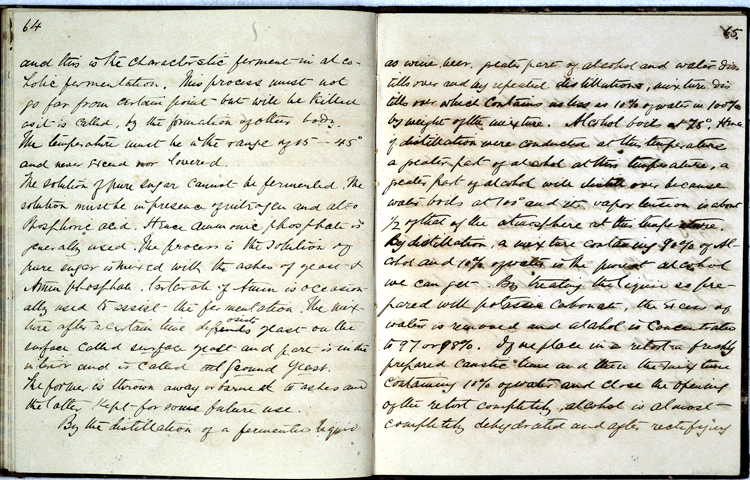 64
and this is the characteristic ferment in alco-
holic fermentation. This process must not
go far from certain point but will be killed
as it is called, by the formation of other body.
The temperature must be in the range of 15 – 45°
and never exceed nor lowered.
The solution of pure sugar cannot be fermented. The
solution must be in presence of nitrogen and also
Phosphoric acid. Hence ammonic phosphate is
generally used. The process is the solution of
pure sugar is mixed with the ashes of yeast &
Amm phosphate. Tartarate of Amm is occasion-
ally used to assist the fermentation. The mix-
ture after a certain time deposits yeast on the
surface called surface yeast and part is in the
interior and is called Ground Yeast.
The former is thrown away or burned to ashes and
the latter kept for some future use.
By the distillation of a fermented liquid
65
as wine, beer, greater part of alcohol and water dis
tills over and by repeated distillations, mixture dis
tills over which contains as less as 10% of water in 100%
by weight of the mixture. Alcohol boils at 78°, Hence
if distillation were conducted at this temperature
a greater part of alcohol at this temperature, a
greater part of alcohol will distill over because
water boils at 100° and its vapor tension is about
1/2 of that of the atmosphere at this temperature.
By distillation, a mixture containing 90% of Al-
cohol and 10% of water is the purest alcohol
we can get. By treating the liquid so pre-
pared with potassic carbonate, the excess of
water is removed and alcohol is concentrated
to 97 or 98%. If we place in a retort in freshly
prepared caustic lime and then the mixture
containing 10% of water and close the opening
of the retort completely, alcohol is almost
completely dehydrated and after rectifying